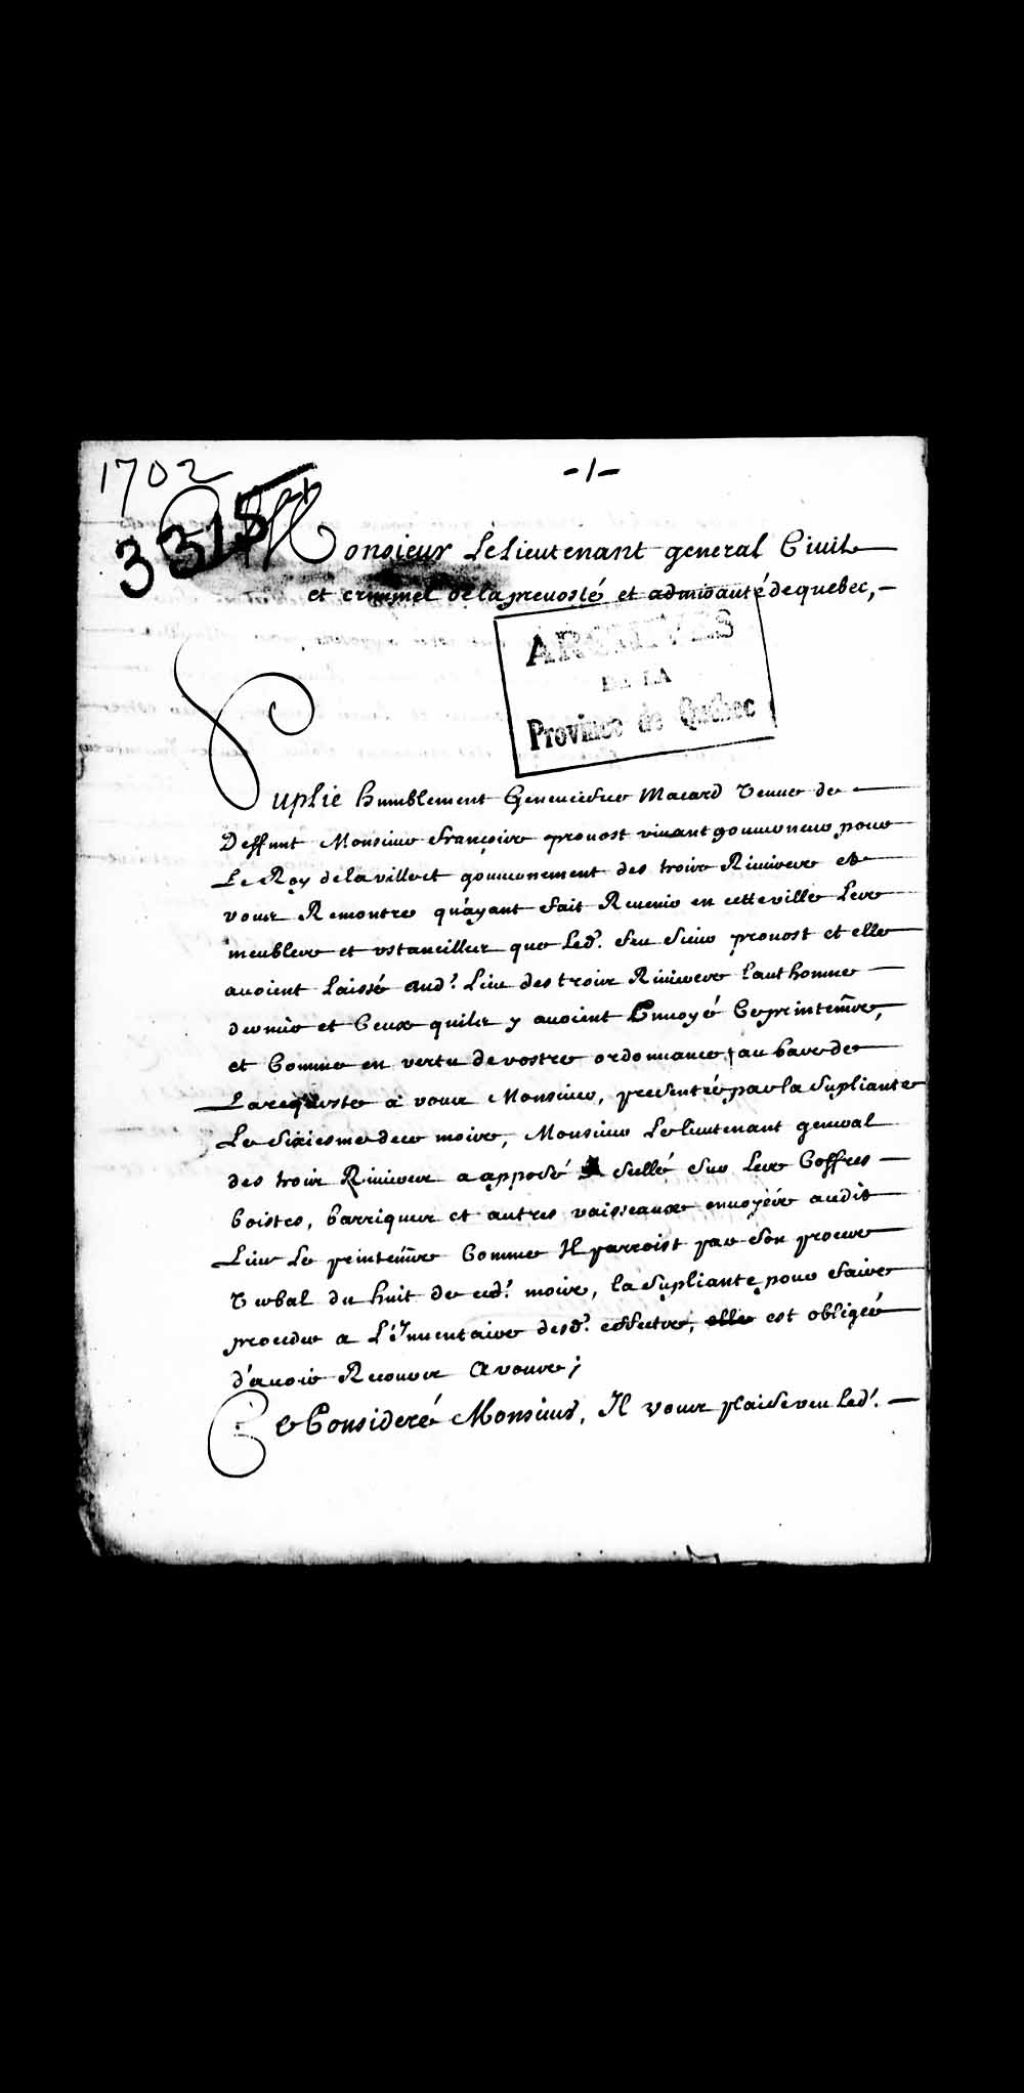 1702
-1-
3315
A Monsieur Le Lieutenant general Civil
et criminel de la prevosté et admirauté de quebec,
ARCHIVES
DE LA
Province de Québec
Suplie humblement Geneuiefue Macard Veuue de
Deffunt Monsieur François prouost viuant gouuerneur pour
Le Roy de la ville et gouuernement des trois Riuieres et
vous Remontre qu'ayant fait Reuenir en cette ville Les
meubles et vstancilles que Led.t feu Sieur prouost et elle
auoient laissé aud.t Lieu des trois Riuieres lauthonne
dernier et Ceux quils y auoient Enuoyé Ce printemps,
et Comme en vertu de vostre ordonnance, au bas de
La requeste a vous Monsieur, presentée par la Supliante
Le Sixiesme de ce mois, Monsieur Le lieutenant general
des trois Riuieres a apposé Sellé Sur Les Coffres
boistes, barriques et autres vaisseaux enuoyés audit
Lieu Le printemps Comme Il parroist par Son proces
Verbal du huit de ced.t mois, la Supliante pour faire
proceder a L'Inuentaire desd.t effects, elle est obligée
d'auoir Recours A vous;
Ce Consideré Monsieur, Il vous plaise veu led.t